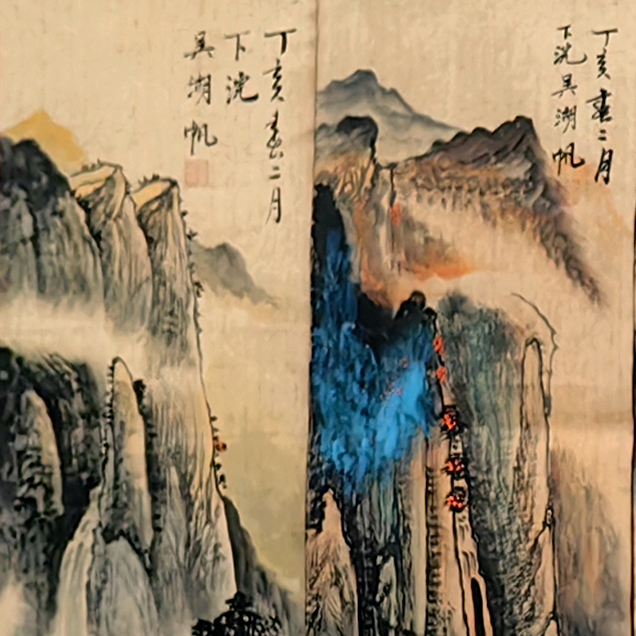 丁亥春二月
下浣
吴湖帆
丁亥春二月
下浣吴湖帆